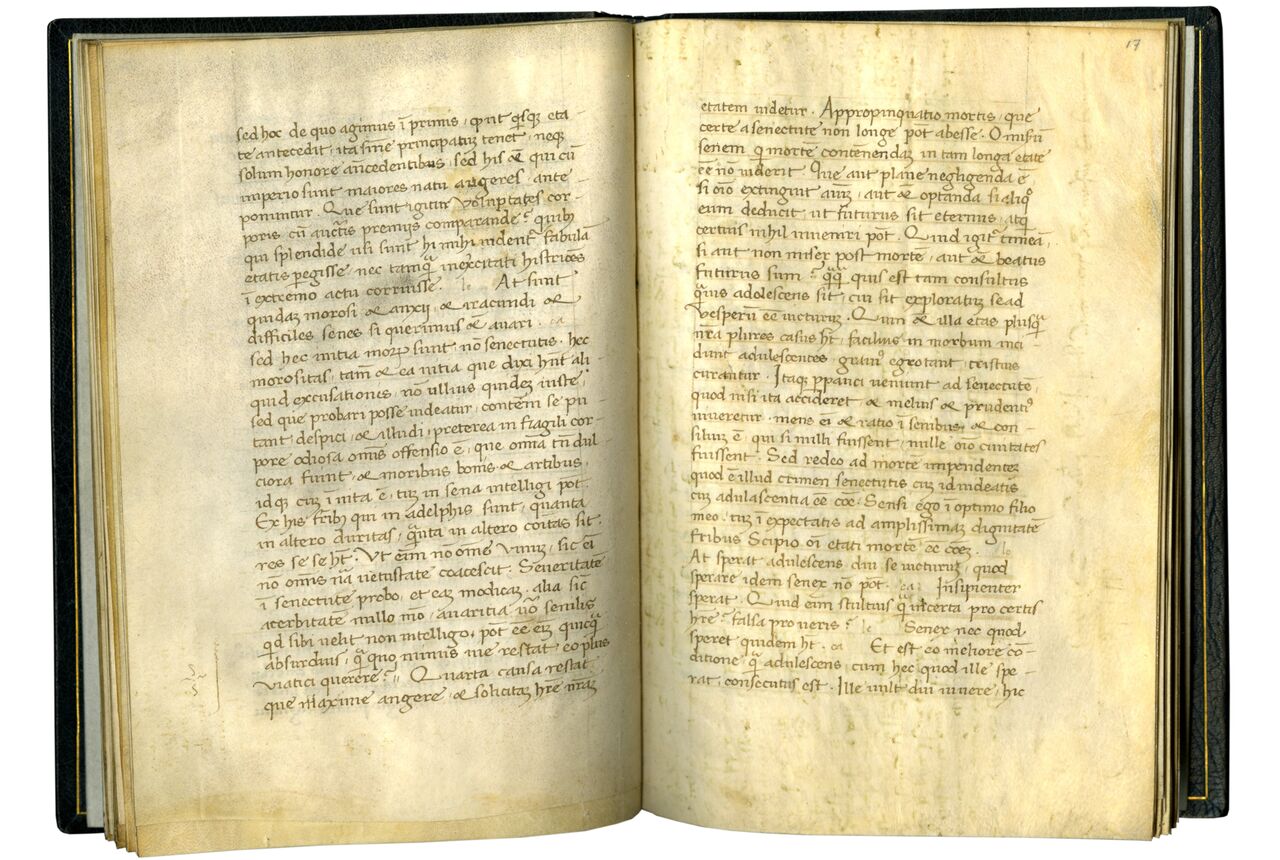 sed hoc de quo agimus ī primis, ꝙ ut qͥsqꝫ eta-
te antecedit, ita sn̄ie principatū tenet, neqꝫ
solum honore ātecedentibus, sed his & qui cū
imperio sunt maiores natu augeres ante
ponuntur. Que sunt igitur voluptates cor-
poris cū auctis premiis comparande? quibꝫ
qui splendide usi sunt hi mihi uidentͬ fabulā
etatis pegisse, nec tamqͣ inexcitati histriōes
ī extremo actu corruisse. le At sunt
quidaꝫ morosi & anxii, & iracundi &
difficiles senes si querimus & auari. ca
sed hec uitia moꝝ sunt nō senectutis. hec
morositas, tam̄ & ea uitia que dixi hn̄t ali-
quid excusationis, nō ullius quideꝫ iuste,
sed que probari posse uideatur, contēni se pu-
tant despici, & illudi, preterea in fragili cor-
pore odiosa omīs offensio ē, que omīa tn̄ dul-
ciora fiunt, & moribus bonis & artibus,
idqꝫ cuꝫ ī uita ē, tuꝫ in sena intelligi pōt.
Ex his fribꝫ qui in adelphis sunt, quanta
in altero duritas, qͣnta in altero coītas sit.
res se se ht̄. Ut eīm nō ōme uinuꝫ, sic ei
nō omīs nā uetustate coacescit. Seueritatē
ī senectute probo, et eaꝫ modicaꝫ, alia sic
acerbitatē nullo mō, auaritia uͦo senilis
qͩ sibi uelit non intelligo, pōt ēē eiꝫ quicqͣ
absurdius, qͣ quo minus uie restat eo plus
uiatici querere? Quarta causa restat
que maxime angere, & solicitaꝫ hr̄e nr̄aꝫ
17
etatem uidetur. Appropinquatio mortis, que
certe a senectute non longe pōt abesse. O misū
senem q̄ mortē contēnendaꝫ in tam longa etate
ēē nō uiderit. Que aut̄ plane negligenda ē
si oīo extinguit aīuꝫ, aut & optanda si aliqͦ
eum deducit ut futurus sit eternus, atqꝫ
certius nihil inueniri pōt. Quid igitͬ timeā,
si aut non miser post mortē, aut & beatus
futurus sum? qͣqͣ quis est tam consultus
qͣuis adolescens sit, cui sit exploratū se ad
Vesperū ēē uicturuꝫ. Quin & illa etas plusqͣ
nr̄a plures casus ht̄, facilius in morbum inci-
dunt adulescentes grauiꝰ egrotant, tristius
curantur. Itaqꝫ ppauci ueniunt ad senectutē,
quod nisi ita accideret & melius & prudentiꝰ
uiueretur. mens ei & ratio ī senibus, & con-
silium ē, qui si nulli fuissent, nulle oīo ciuitates
fuissent. Sed redeo ad mortē impendenteꝫ
quod ē illud crimen senectutis cuꝫ id uideatis
cuꝫ adulascentia ēē cōē. Sensi ego ī optimo filio
meo. tuꝫ ī expectatis ad amplissimaꝫ dignitatē
fribus Scipio oī etati mortē ēē cōeꝫ. le
At sperat adulescens diu se uicturuꝫ, quod
sperare idem senex nō pōt. ca Insipienter
sperat. Quid eīm stultius qͣ incerta pro certis
hr̄e? falsa pro ueris? le Senex nec quod
speret quidem ht̄. ca Et est eo meliore cō-
ditione qͣ adulescens, cum hec quod ille spe-
rat, consecutus est. Ille uult diu uiuere, hic